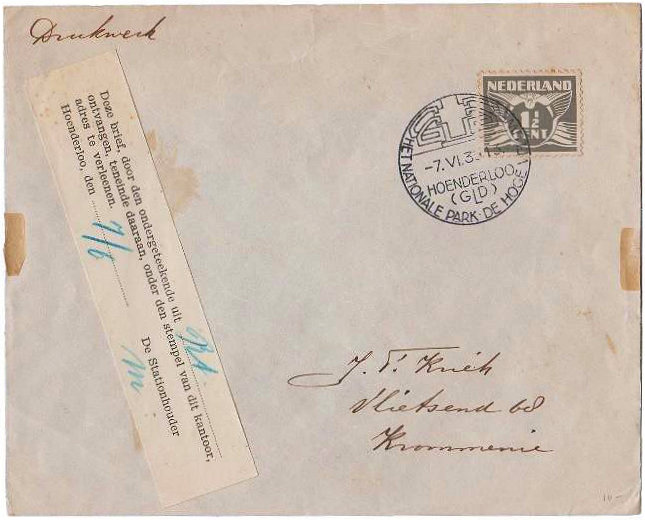 Drukwerk
NEDERLAND
1½
CENT
HET NATIONALE PARK DE HOGE
-7.VI.3
HOENDERLOO
(GLD)
Deze brief, door den ondergeteekende uit
ontvangen, teneinde daaraan, onder den stempel van dit kantoor,
adres te verleenen.
Hoenderloo, den 7/6
De Stationhouder
Vlietsend 68
Krommenie